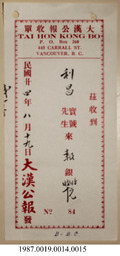 單收報公漢大
TAI HON KONG BO
P. O. Box 268
445 CARRALL ST.
VANCOUVER, B. C.
茲收到
利昌
寶號
先生
來報銀
民國廿四年八月十九日大漢公報發
No 84
1987.0019.0014.0015